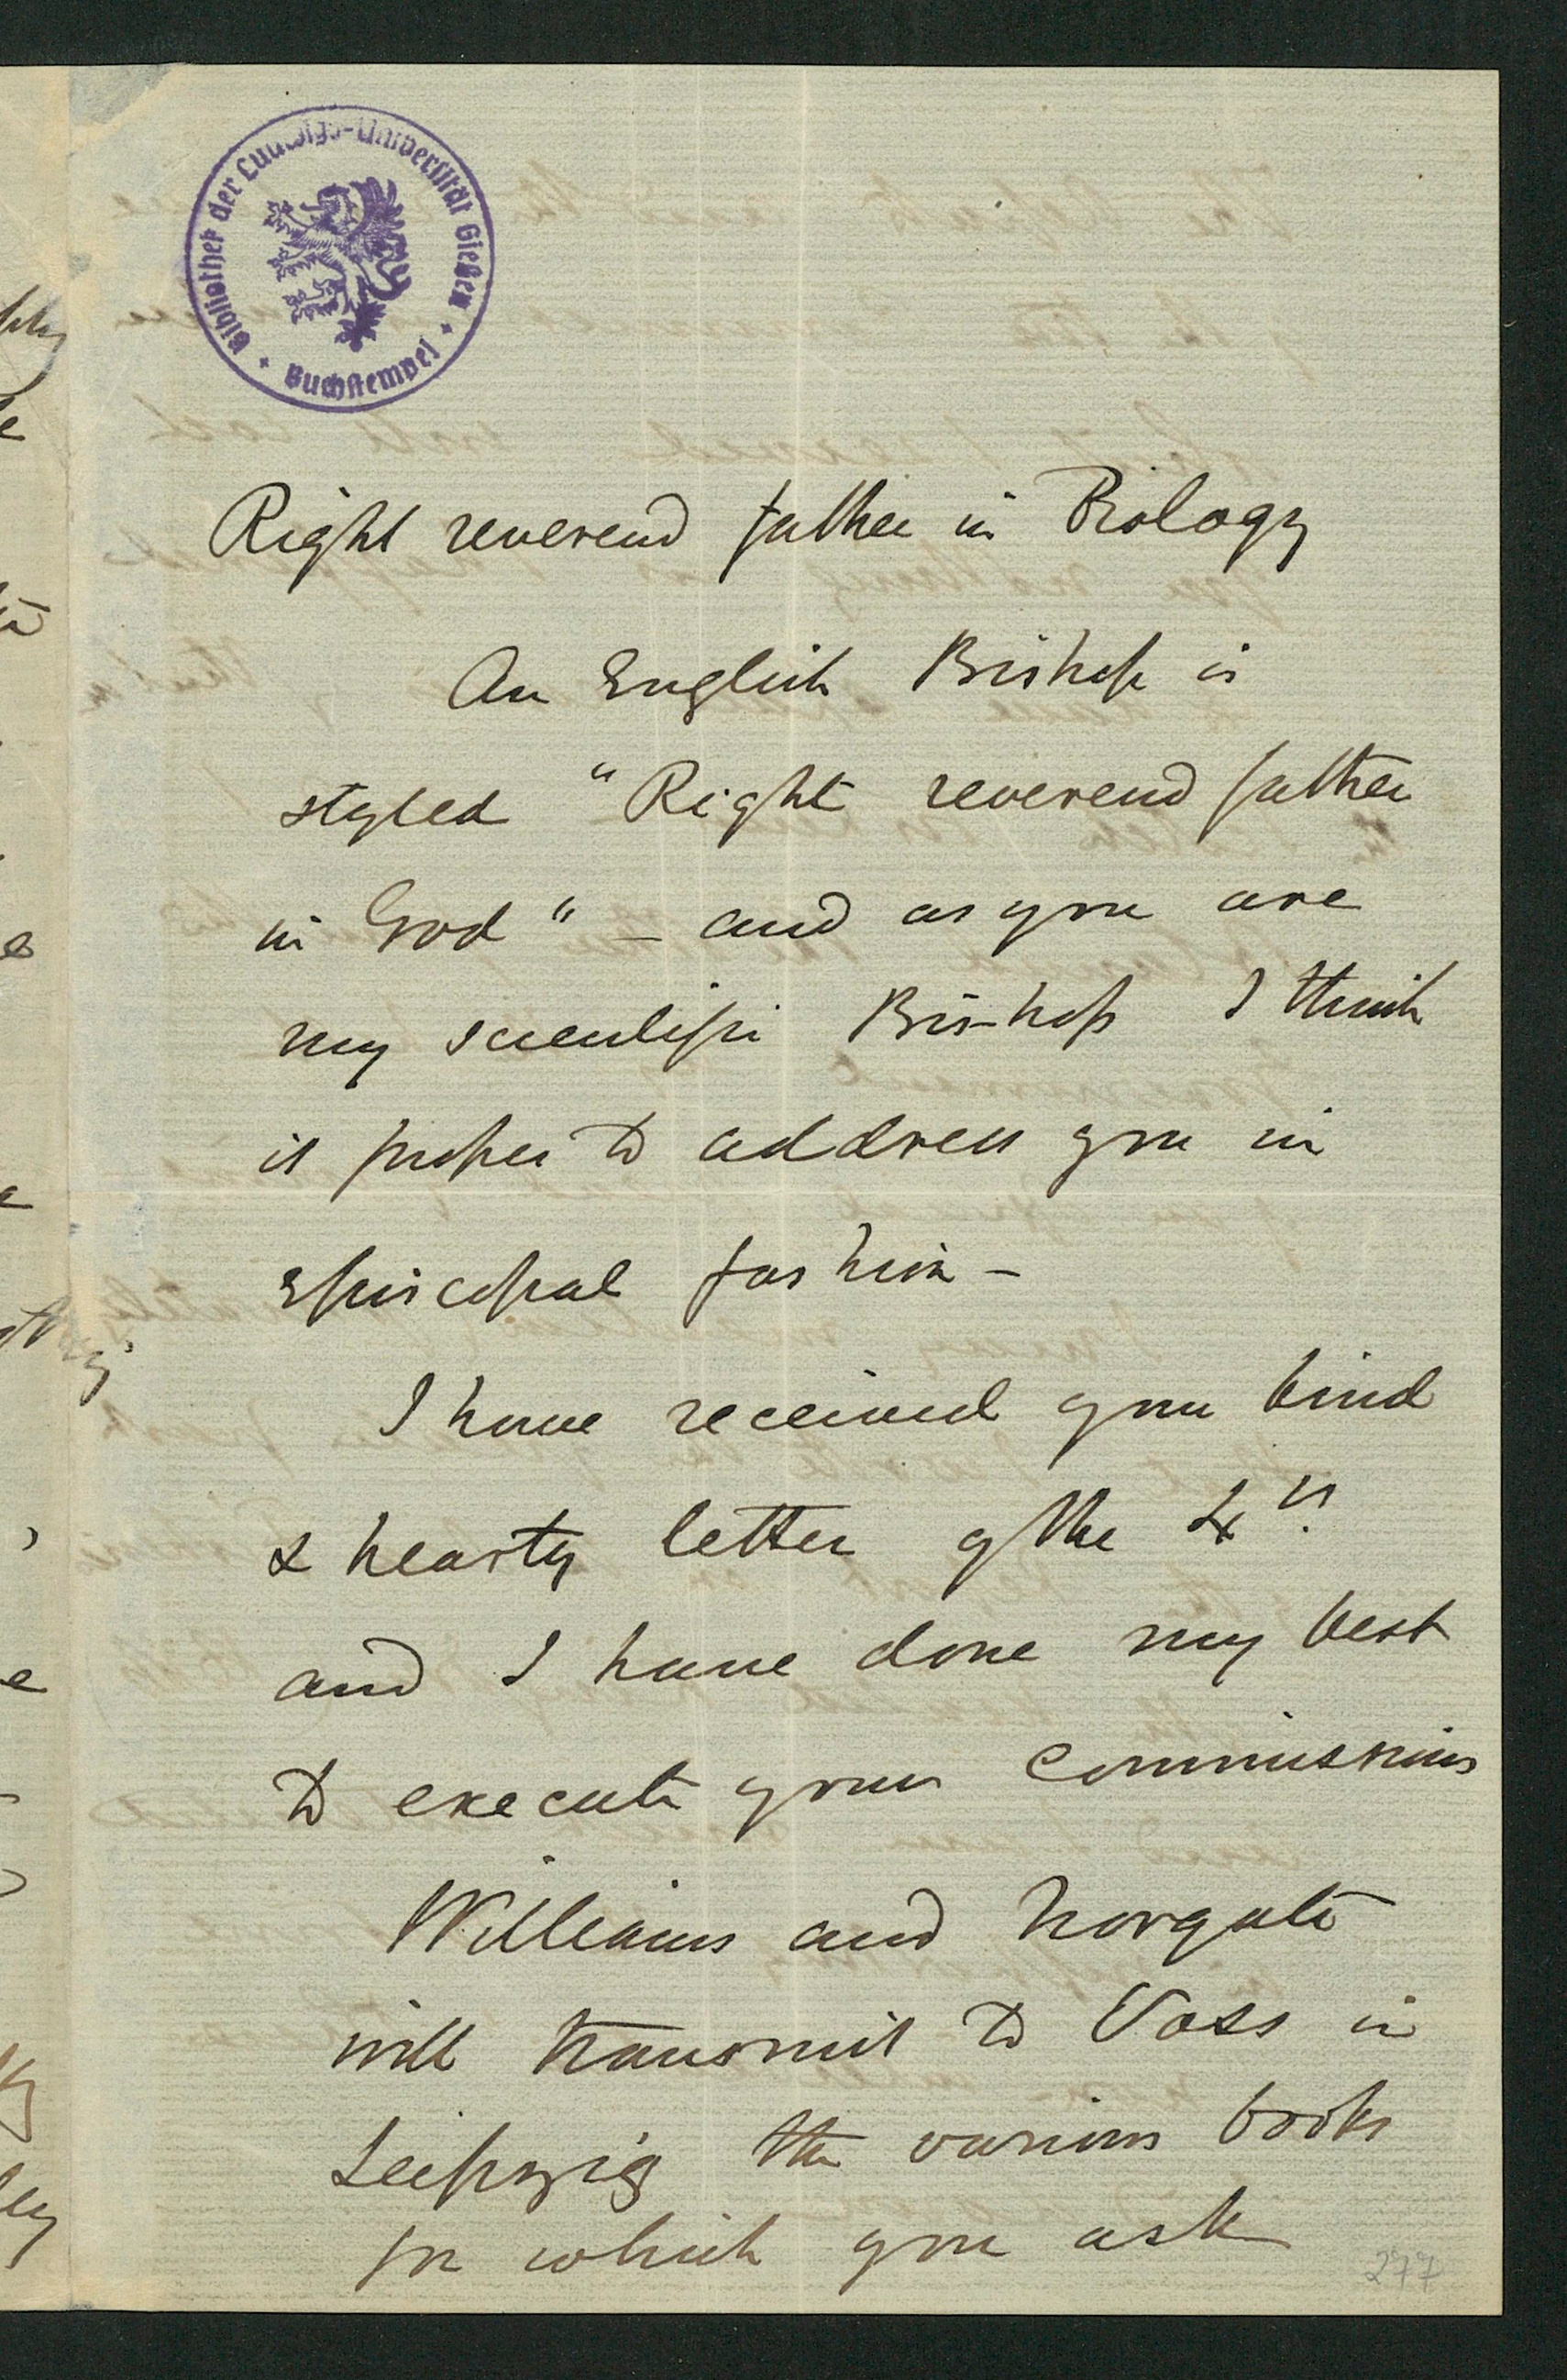 Bibliothek der Ludwigs-Universität Gießen
Buchstempel
Right reverend father in Biology
An English Bishop is
styled "Right reverend father
in God" – and as you are
my scientific Bishop I think
it proper to address you in
Episcopal fashion –
I have received your kind
& hearty letter of the 4th.
and I have done my best
to execute your commissions
Williams and Norgate
will transmit to Voss in
Leipzig the various books
for which you ask
277